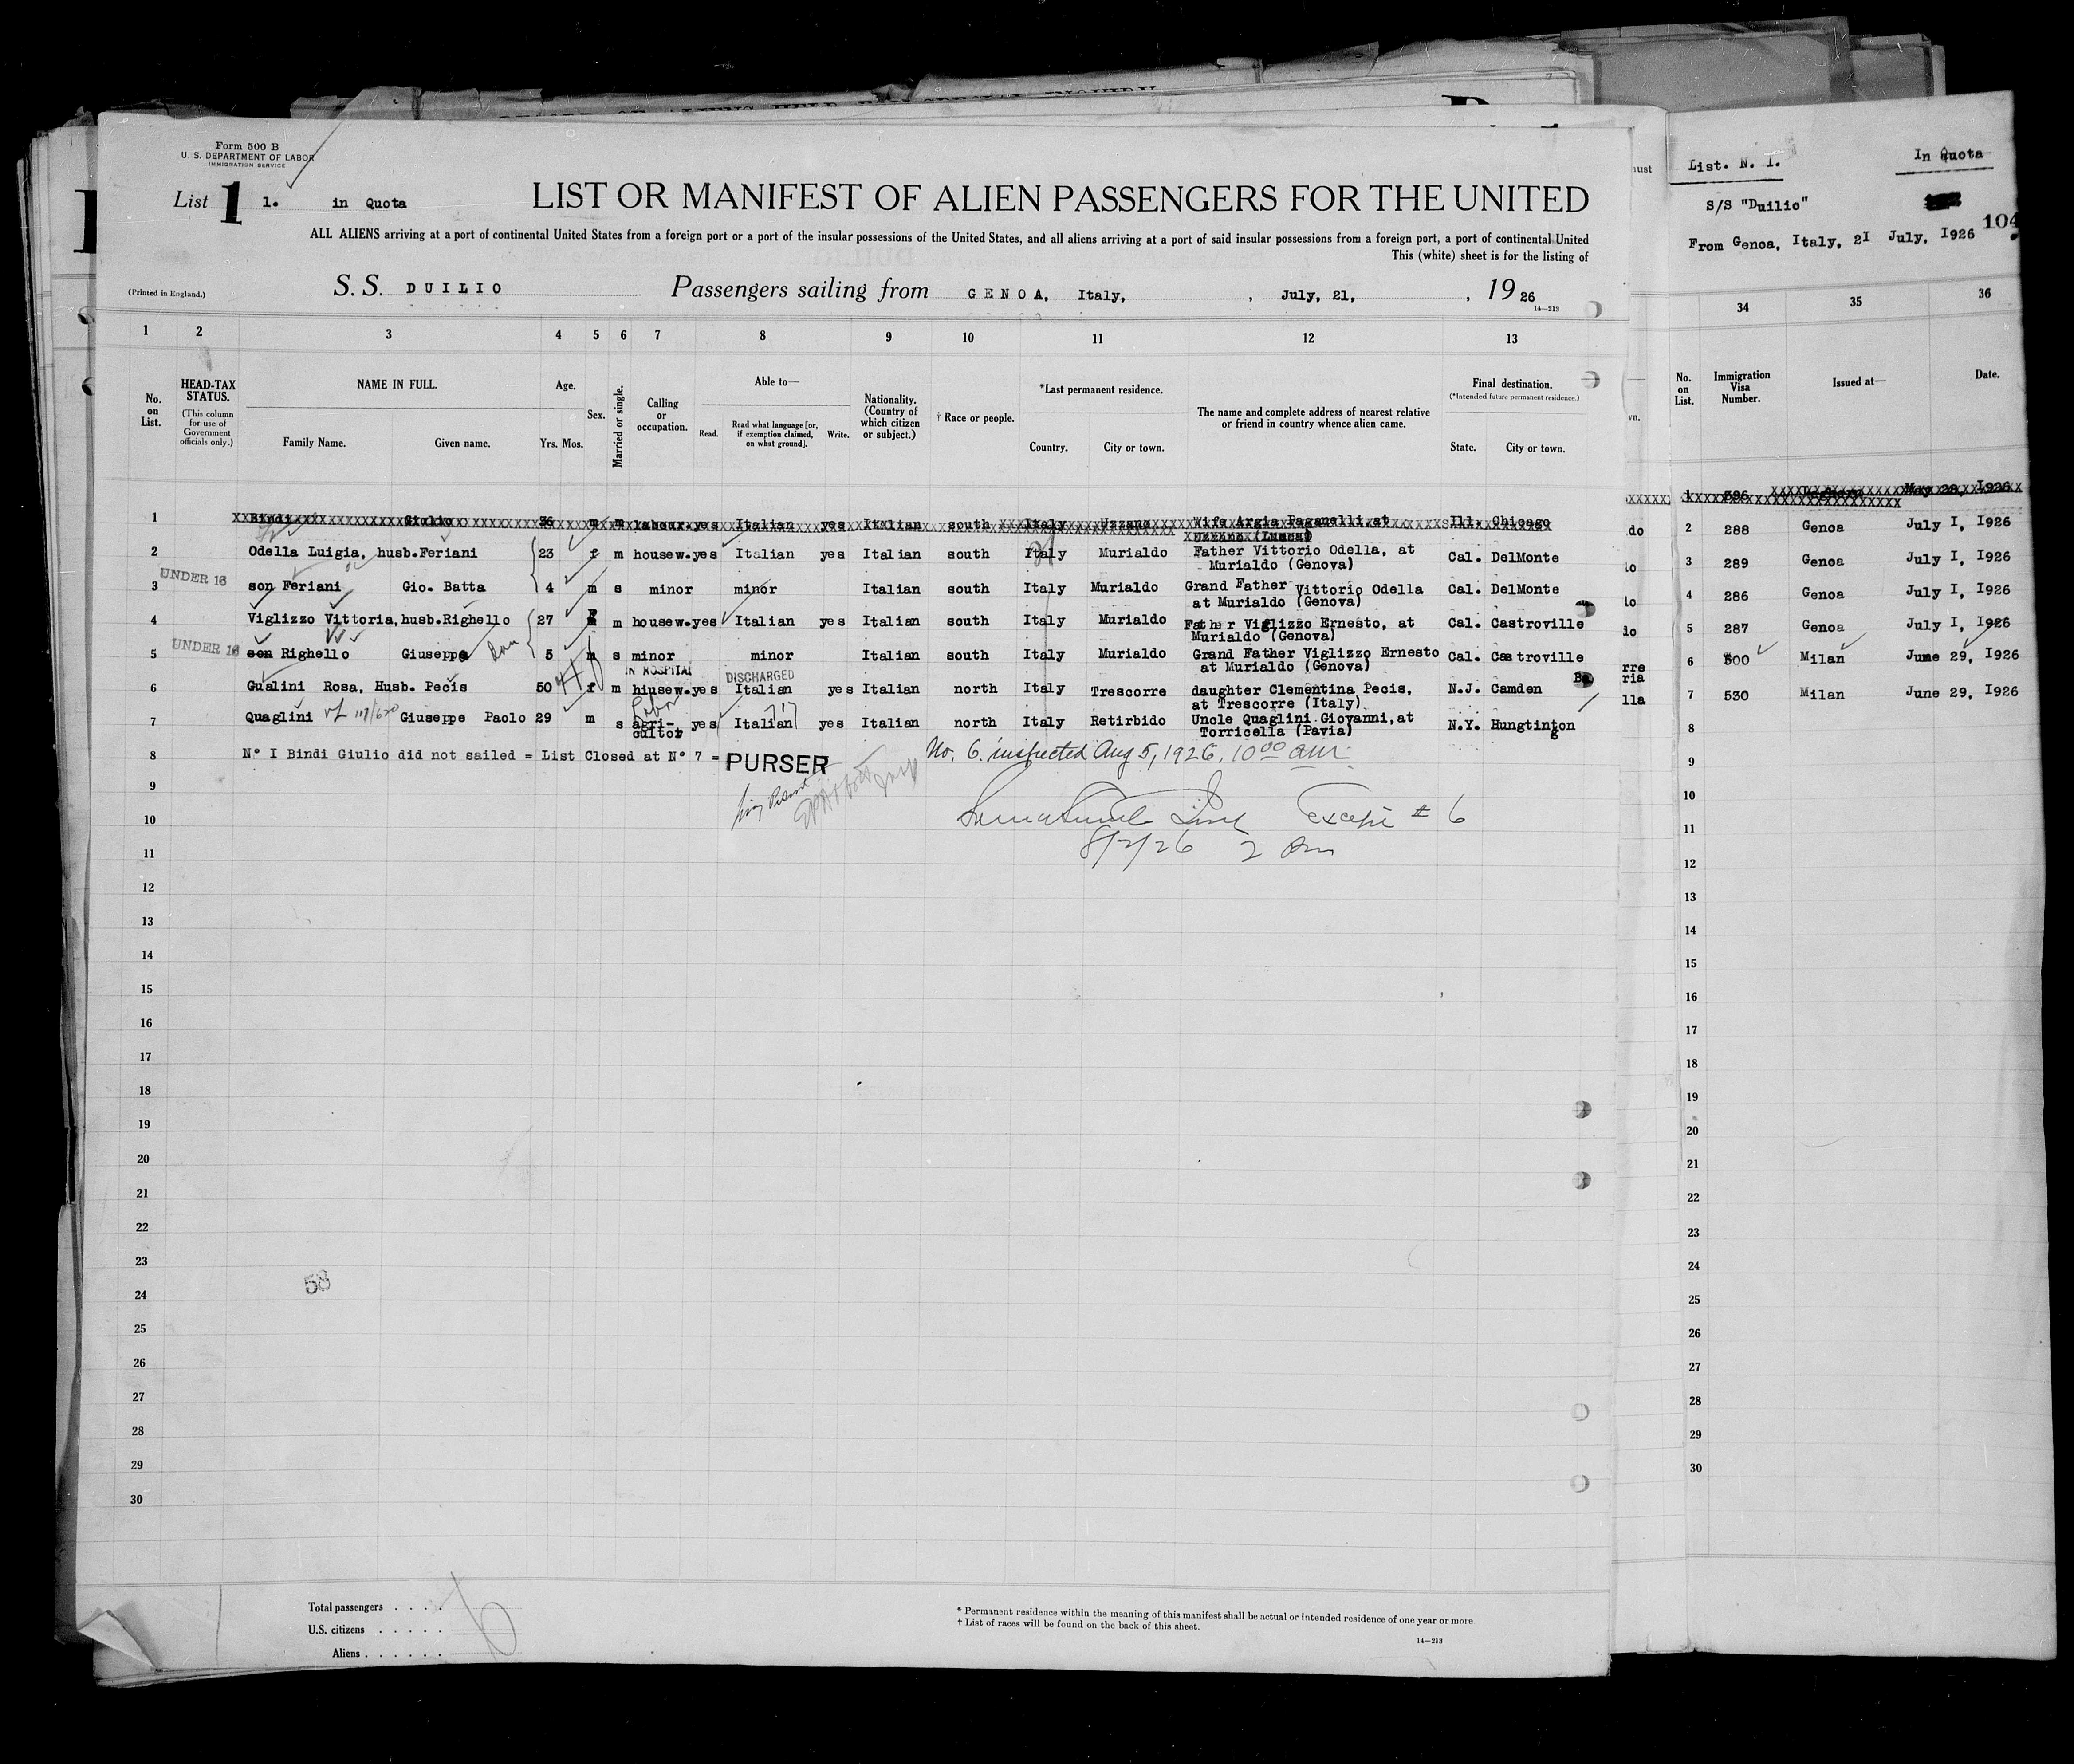 Form 500 B
U. S. DEPARTMENT OF LABOR
IMMIGRATION SERVICE
List 1 1. in Quota
LIST OR MANIFEST OF ALIEN PASSENGERS FOR THE UNITED
ALL ALIENS arriving at a port of continental United States from a foreign port or a port of the insular possessions of the United States, and all aliens arriving at a port of said insular possessions from a foreign port, a port of continental United
This (white) sheet is for the listing of
(Printed in England.)
S. S. DUILIO Passengers sailing from GENOA, Italy, , July, 21, , 19 26
14—213
1 2 3 4 5 6 7 8 9 10 11 12 13
No. on List.
HEAD-TAX STATUS.
(This column for use of Government officials only.)
NAME IN FULL.
Family Name. Given name.
Age.
Yrs. Mos.
Sex.
Married or single.
Calling or occupation.
Able to—
Read. Read what language [or, if exemption claimed, on what ground]. Write.
Nationality. (Country of which citizen or subject.)
† Race or people.
*Last permanent residence.
Country. City or town.
The name and complete address of nearest relative or friend in country whence alien came.
Final destination.
(*Intended future permanent residence.)
State. City or town.
1 Bindi Giulio 36 m m labour. yes Italian yes Italian south Italy Uzzano Wife Argia Paganelli at Ill. Chicago
Uzzano (Lucca)
2 Odella Luigia, husb.Feriani 23 f m housew.yes Italian yes Italian south Italy Murialdo Father Vittorio Odella, at Cal. DelMonte
Murialdo (Genova)
UNDER 16
3 son Feriani Gio. Batta 4 m s minor minor Italian south Italy Murialdo Grand Father Vittorio Odella Cal. DelMonte
at Murialdo (Genova)
4 Viglizzo Vittoria,husb.Righello 27 F m housew.yes Italian yes Italian south Italy Murialdo Father Viglizzo Ernesto, at Cal. Castroville
Murialdo (Genova)
UNDER 16
5 son Righello Giuseppe 5 m s minor minor Italian south Italy Murialdo Grand Father Viglizzo Ernesto Cal. Castroville
at Murialdo (Genova)
IN HOSPITAL DISCHARGED
6 Gualini Rosa, Husb. Pecis 50 f m hiusew.yes Italian yes Italian north Italy Trescorre daughter Clementina Pecis, N.J. Camden
at Trescorre (Italy)
7 Quaglini Giuseppe Paolo 29 m s agri- yes Italian yes Italian north Italy Retirbido Uncle Quaglini Giovanni,at N.Y. Hungtington
cultor Torricella (Pavia)
8 N° I Bindi Giulio did not sailed = List Closed at N° 7 = PURSER
No. 6. inspected Aug 5, 1926. 10 00 am.
9
10 Except # 6
8/2/26 2 Pm
11
12
13
14
15
16
17
18
19
20
21
22
23
58
24
25
26
27
28
29
30
Total passengers . . . . 6
U.S. citizens . . . . .
Aliens . . . . . .
* Permanent residence within the meaning of this manifest shall be actual or intended residence of one year or more.
† List of races will be found on the back of this sheet.
14—213
List. N. I. In Quota
S/S "Duilio"
104
From Genoa, Italy, 21 July, I926
34 35 36
No. on List. Immigration Visa Number. Issued at— Date.
1 596 May 28, I926
2 288 Genoa July I, I926
3 289 Genoa July I, I926
4 286 Genoa July I, I926
5 287 Genoa July I, I926
6 500 Milan June 29, I926
7 530 Milan June 29, I926
8
9
10
11
12
13
14
15
16
17
18
19
20
21
22
23
24
25
26
27
28
29
30